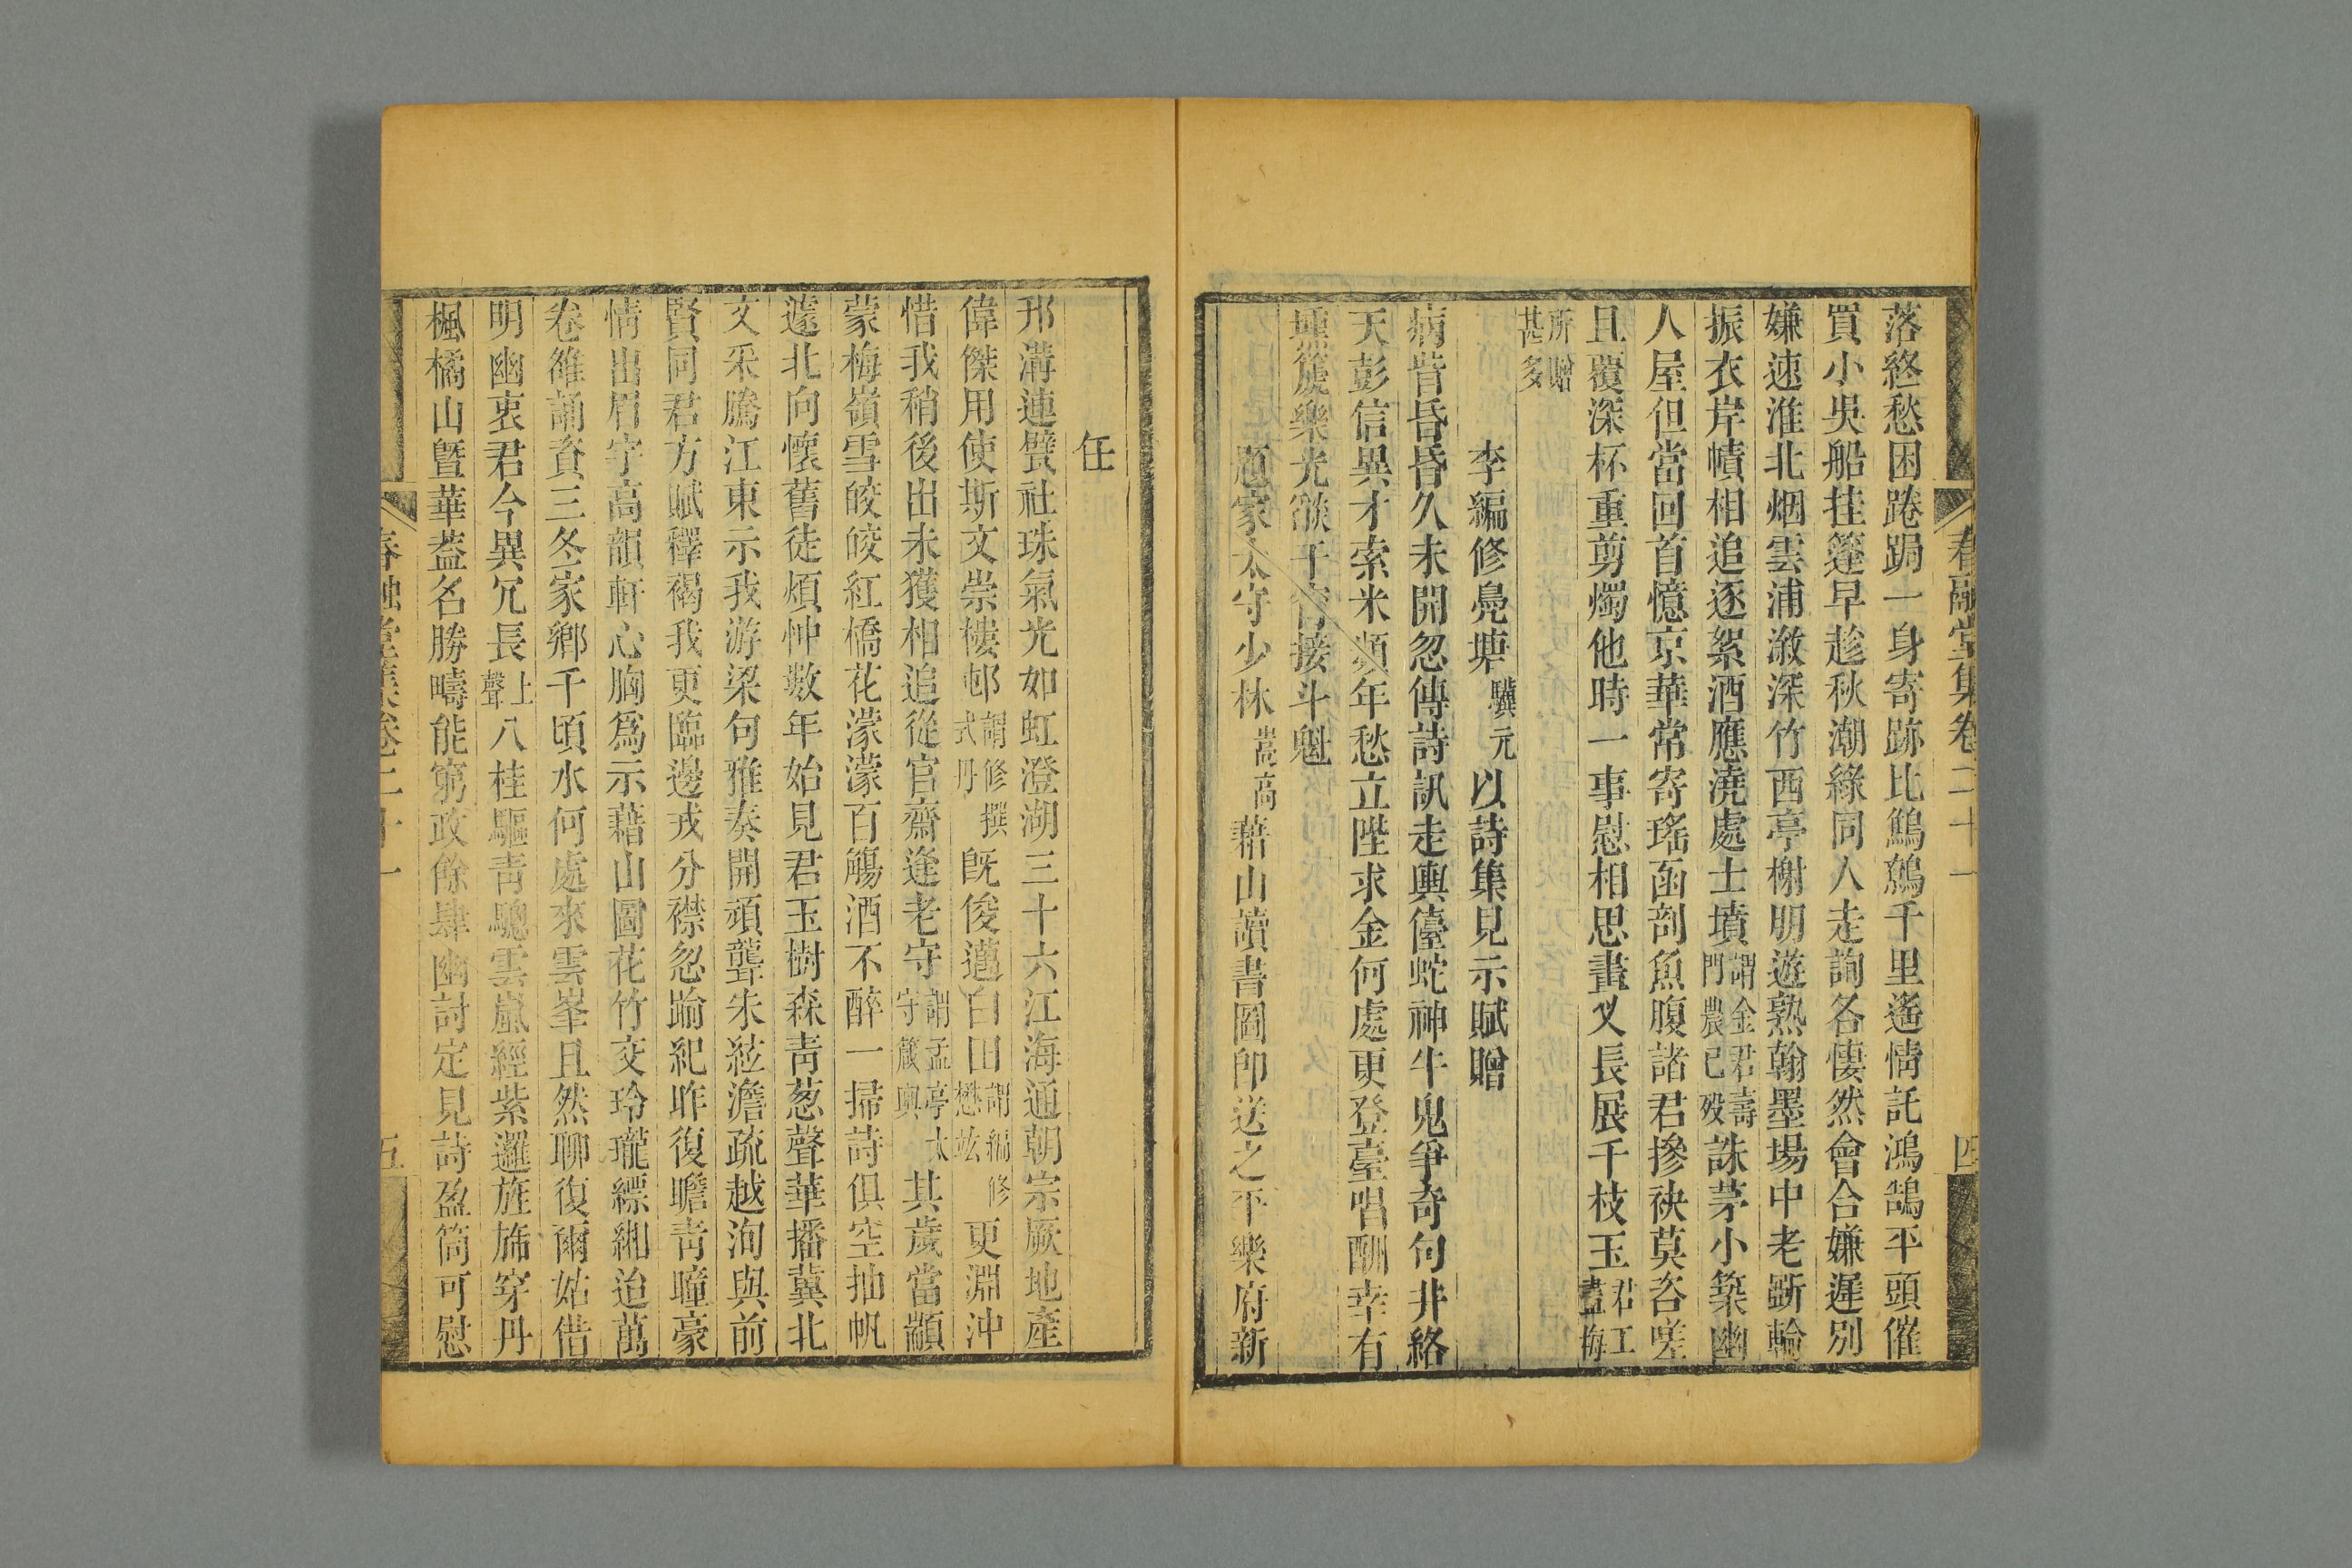 春融堂集卷二十一
四
落終愁困踡跼一身寄跡比鷦鷯千里遙情託鴻鵠平頭催
買小吳船挂篷早趁秋潮綠同人走詢各悽然會合嫌遲別
嫌速淮北烟雲浦漵深竹西亭榭明遊熟翰墨場中老斲輪
振衣岸幘相追逐絮酒應澆處士墳謂金君壽門農已歿誅茅小築幽
人屋但當回首憶京華常寄瑤函剖魚腹諸君摻袂莫咨嗟
且覆深杯重剪燭他時一事慰相思畫叉長展千枝玉君工畫梅
所贈甚多
李編修鳧塘驥元以詩集見示賦贈
病眥昏昏久未開忽傳詩訊走輿儓蛇神牛鬼爭奇句井絡
天彭信異才索米頻年愁立陛求金何處更登臺唱酬幸有
壎篪樂光燄干霄接斗魁
題家太守少林嵩高藉山讀書圖卽送之平樂府新
任
邗溝連甓社珠氣光如虹澄湖三十六江海通朝宗厥地產
偉傑用使斯文崇樓邨謂修撰式丹旣俊邁白田謂編修懋竑更淵沖
惜我稍後出未獲相追從官齋逢老守謂孟亭太守箴輿其歲當顓
蒙梅嶺雪皎皎紅橋花濛濛百觴酒不醉一掃詩俱空抽帆
遽北向懷舊徒煩忡數年始見君玉樹森靑葱聲華播冀北
文采騰江東示我游梁句雅奏開頑聾朱絃澹疏越洵與前
賢同君方賦釋褐我更臨邊戎分襟忽踰紀昨復瞻靑瞳豪
情出眉宇高韻軒心胸爲示藉山圖花竹交玲瓏縹緗迨萬
卷雒誦資三冬家鄉千頃水何處來雲峯且然聊復爾姑借
明幽衷君今異冗長上聲八桂驅靑驄雲嵐經紫邏旌斾穿丹
楓橘山曁華蓋名勝疇能窮政餘肆幽討定見詩盈筒可慰
春融堂集卷二十一
五